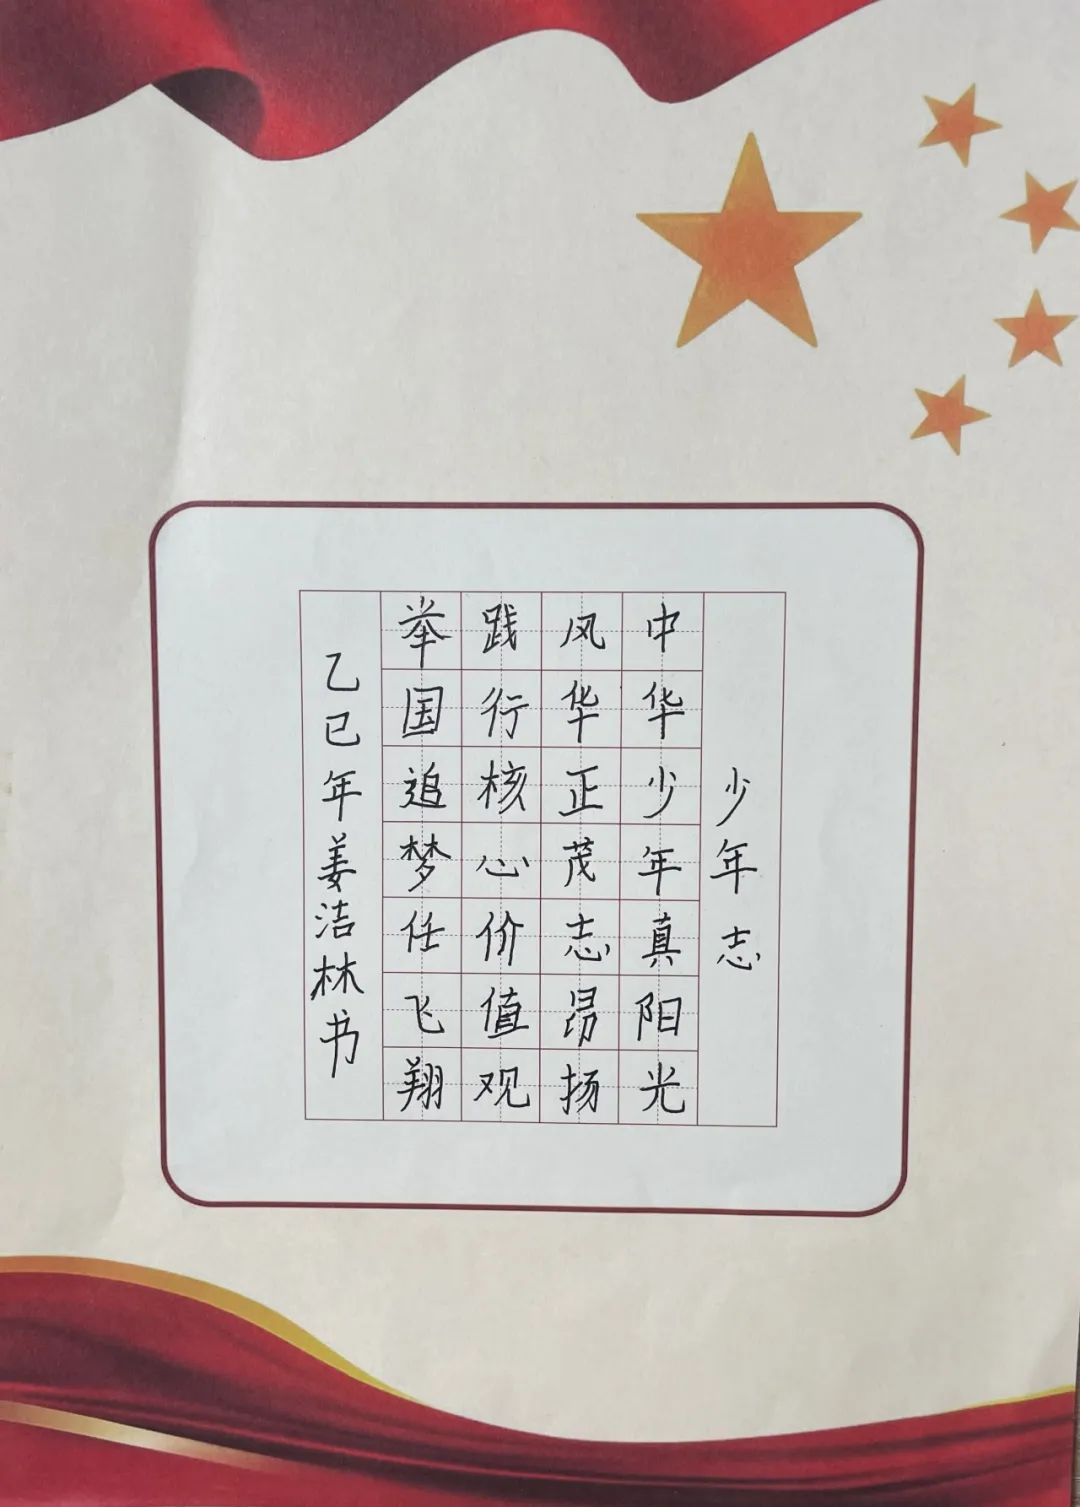 少年志
中华少年真阳光
风华正茂志昂扬
践行核心价值观
举国追梦任飞翔
乙巳年姜洁林书